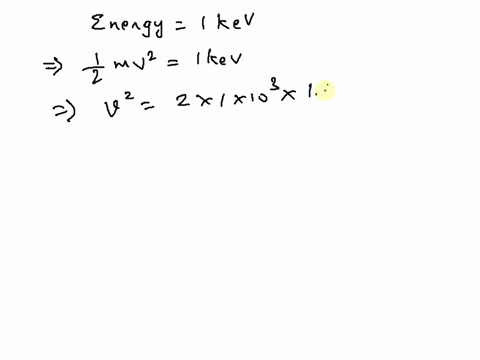 Energy = 1 keV
⇒ 1/2 mv² = 1 keV
⇒ v² = 2 × 1 × 10³ × 1.